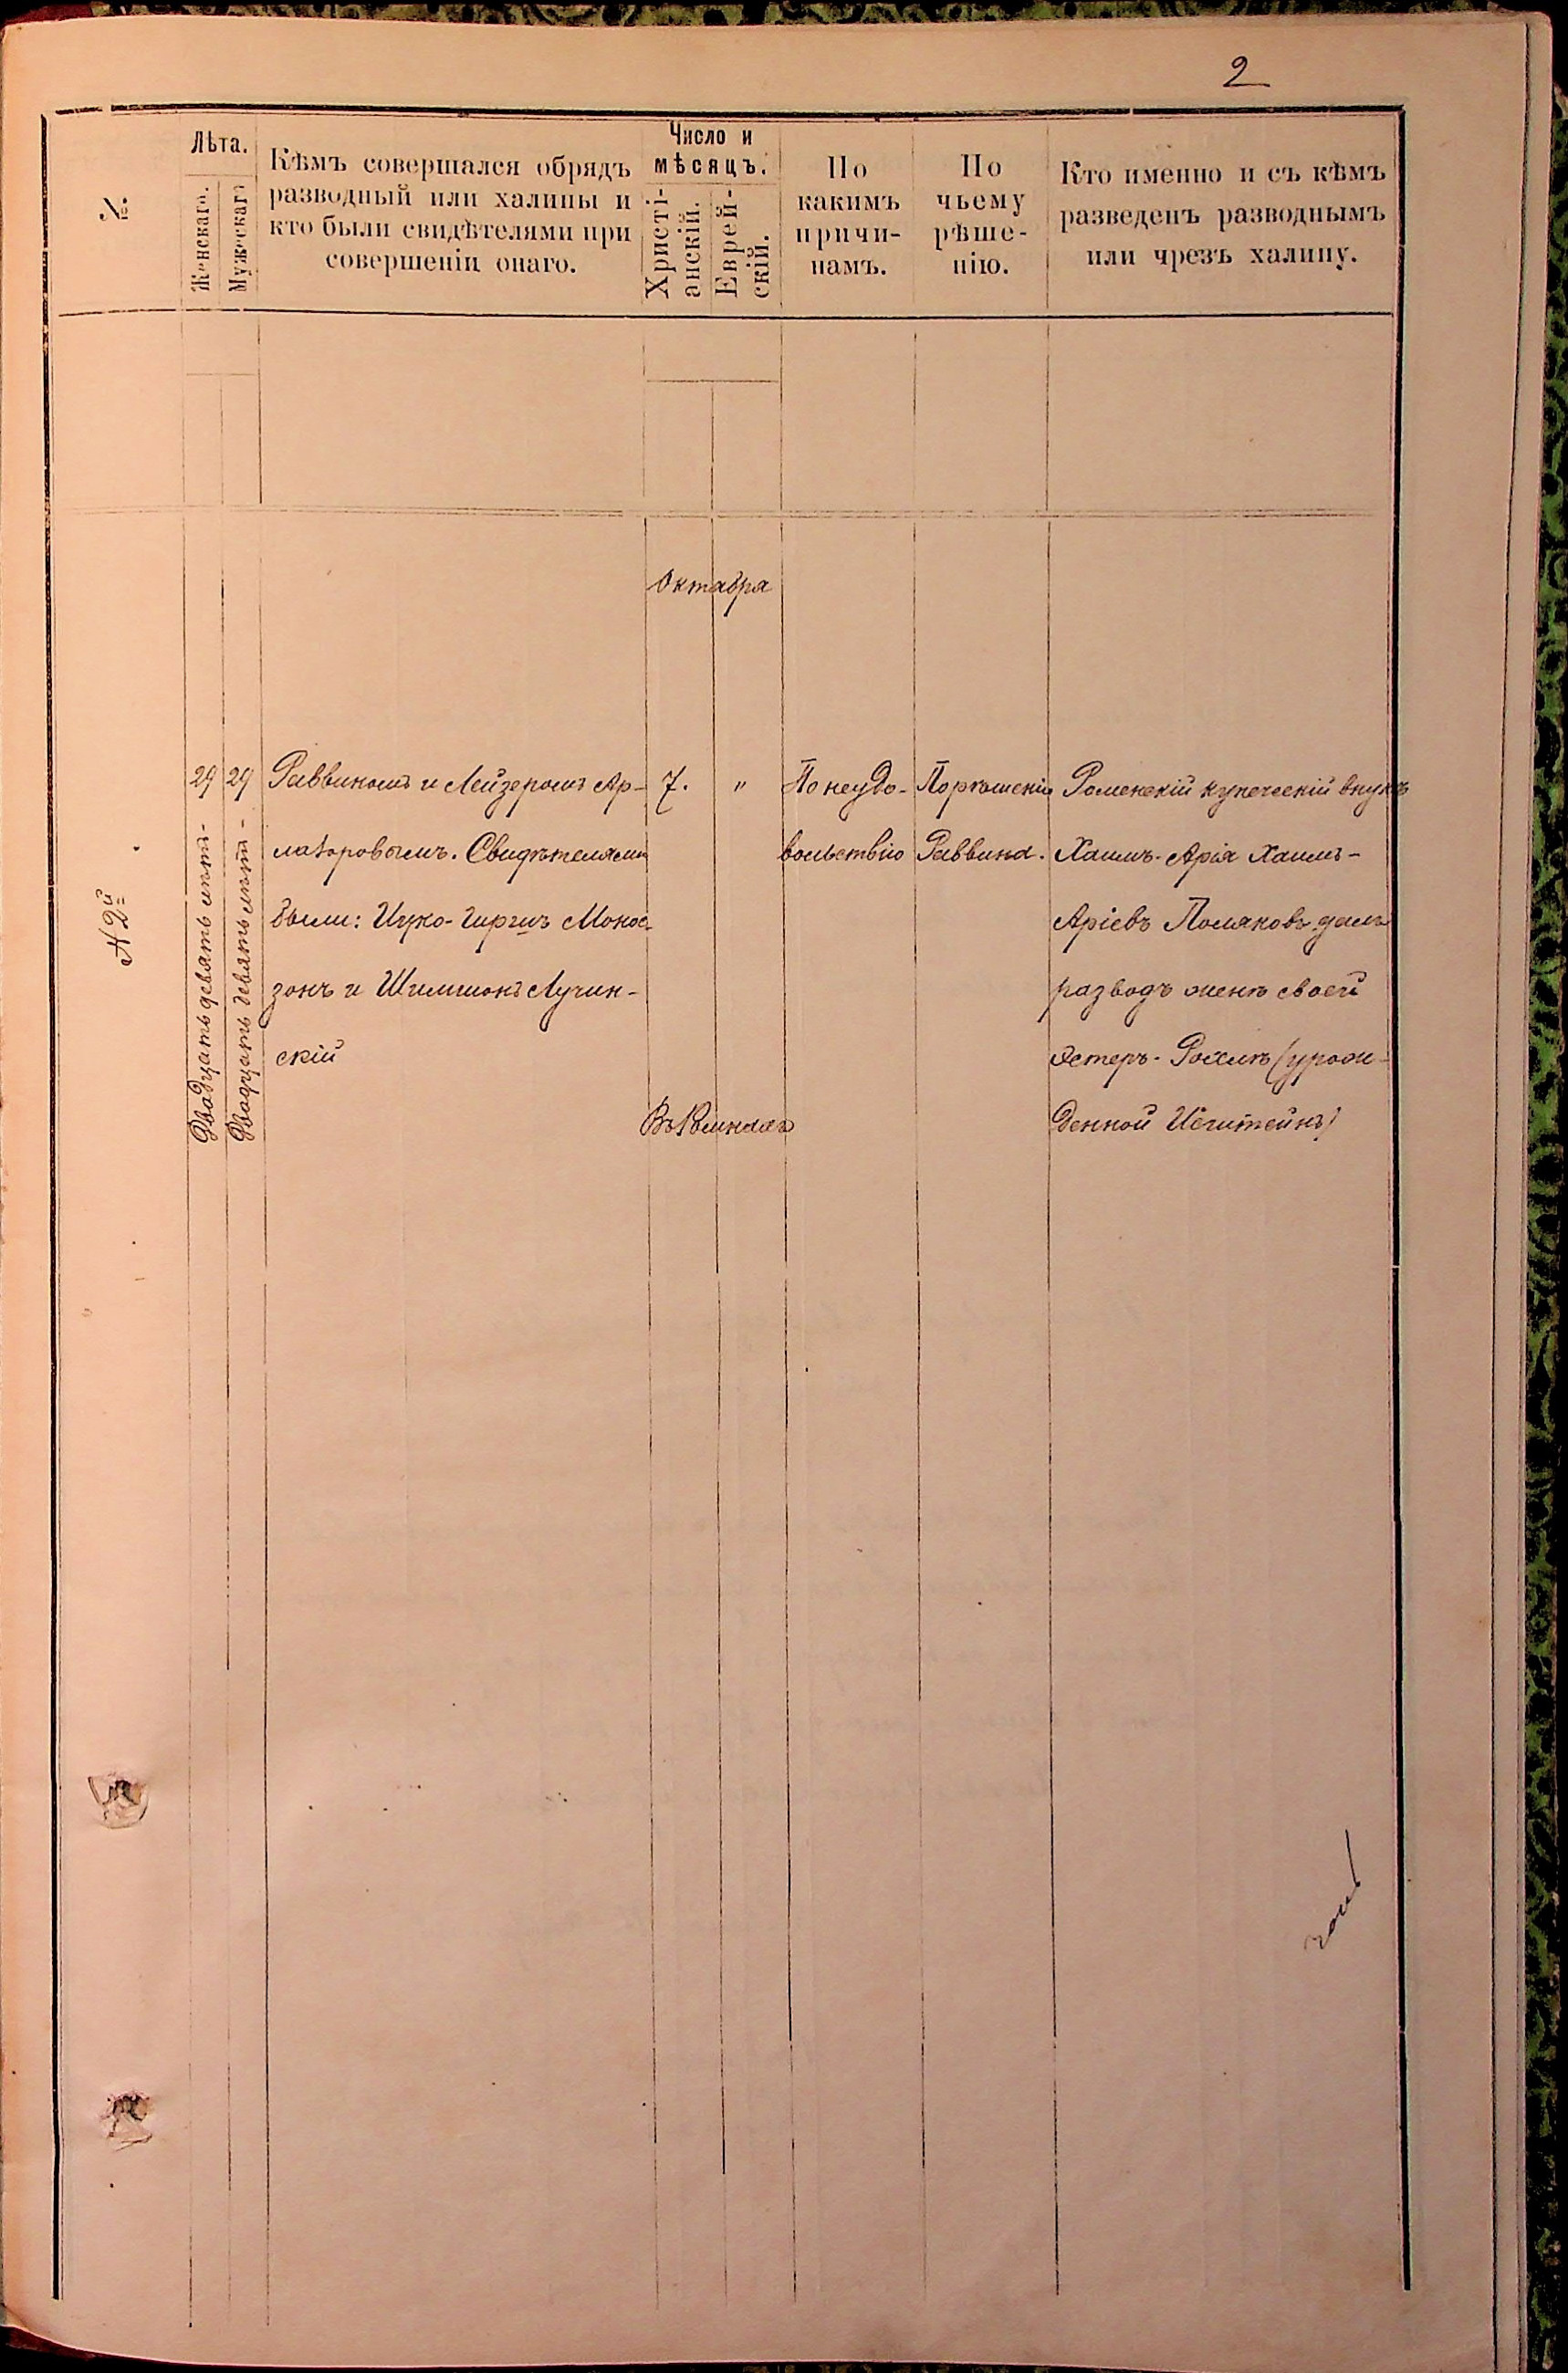 2
№
Лѣта.
Женскаго.
Мужскаго
Кѣмъ совершался обрядъ
разводный или халицы и
кто были свидѣтелями при
совершеніи онаго.
Число и
мѣсяцъ.
Христі-
анскій.
Еврей-
скій.
По
какимъ
причи-
намъ.
По
чьему
рѣше-
нію.
Кто именно и съ кѣмъ
разведенъ разводнымъ
или чрезъ халицу.
Октабря
N 2й
29
Двадцать девять лѣтъ-
29
Двадцать девять лѣтъ-
Раввиномъ и Лейзеромъ Ар-
лазоровымъ. Свидѣтелями
были: Ицко-Гиршъ Монос
зонъ и Шимшонъ Лучин-
скій
7. "
По неудо-
вольствію
По рѣшенію
Раввина.
Роменскій купеческій внукъ
Хаимъ-Арія Хаимъ-
Аріевъ Поляковъ далъ
разводъ женѣ своей
Эстеръ-Рохлѣ (урож-
денной